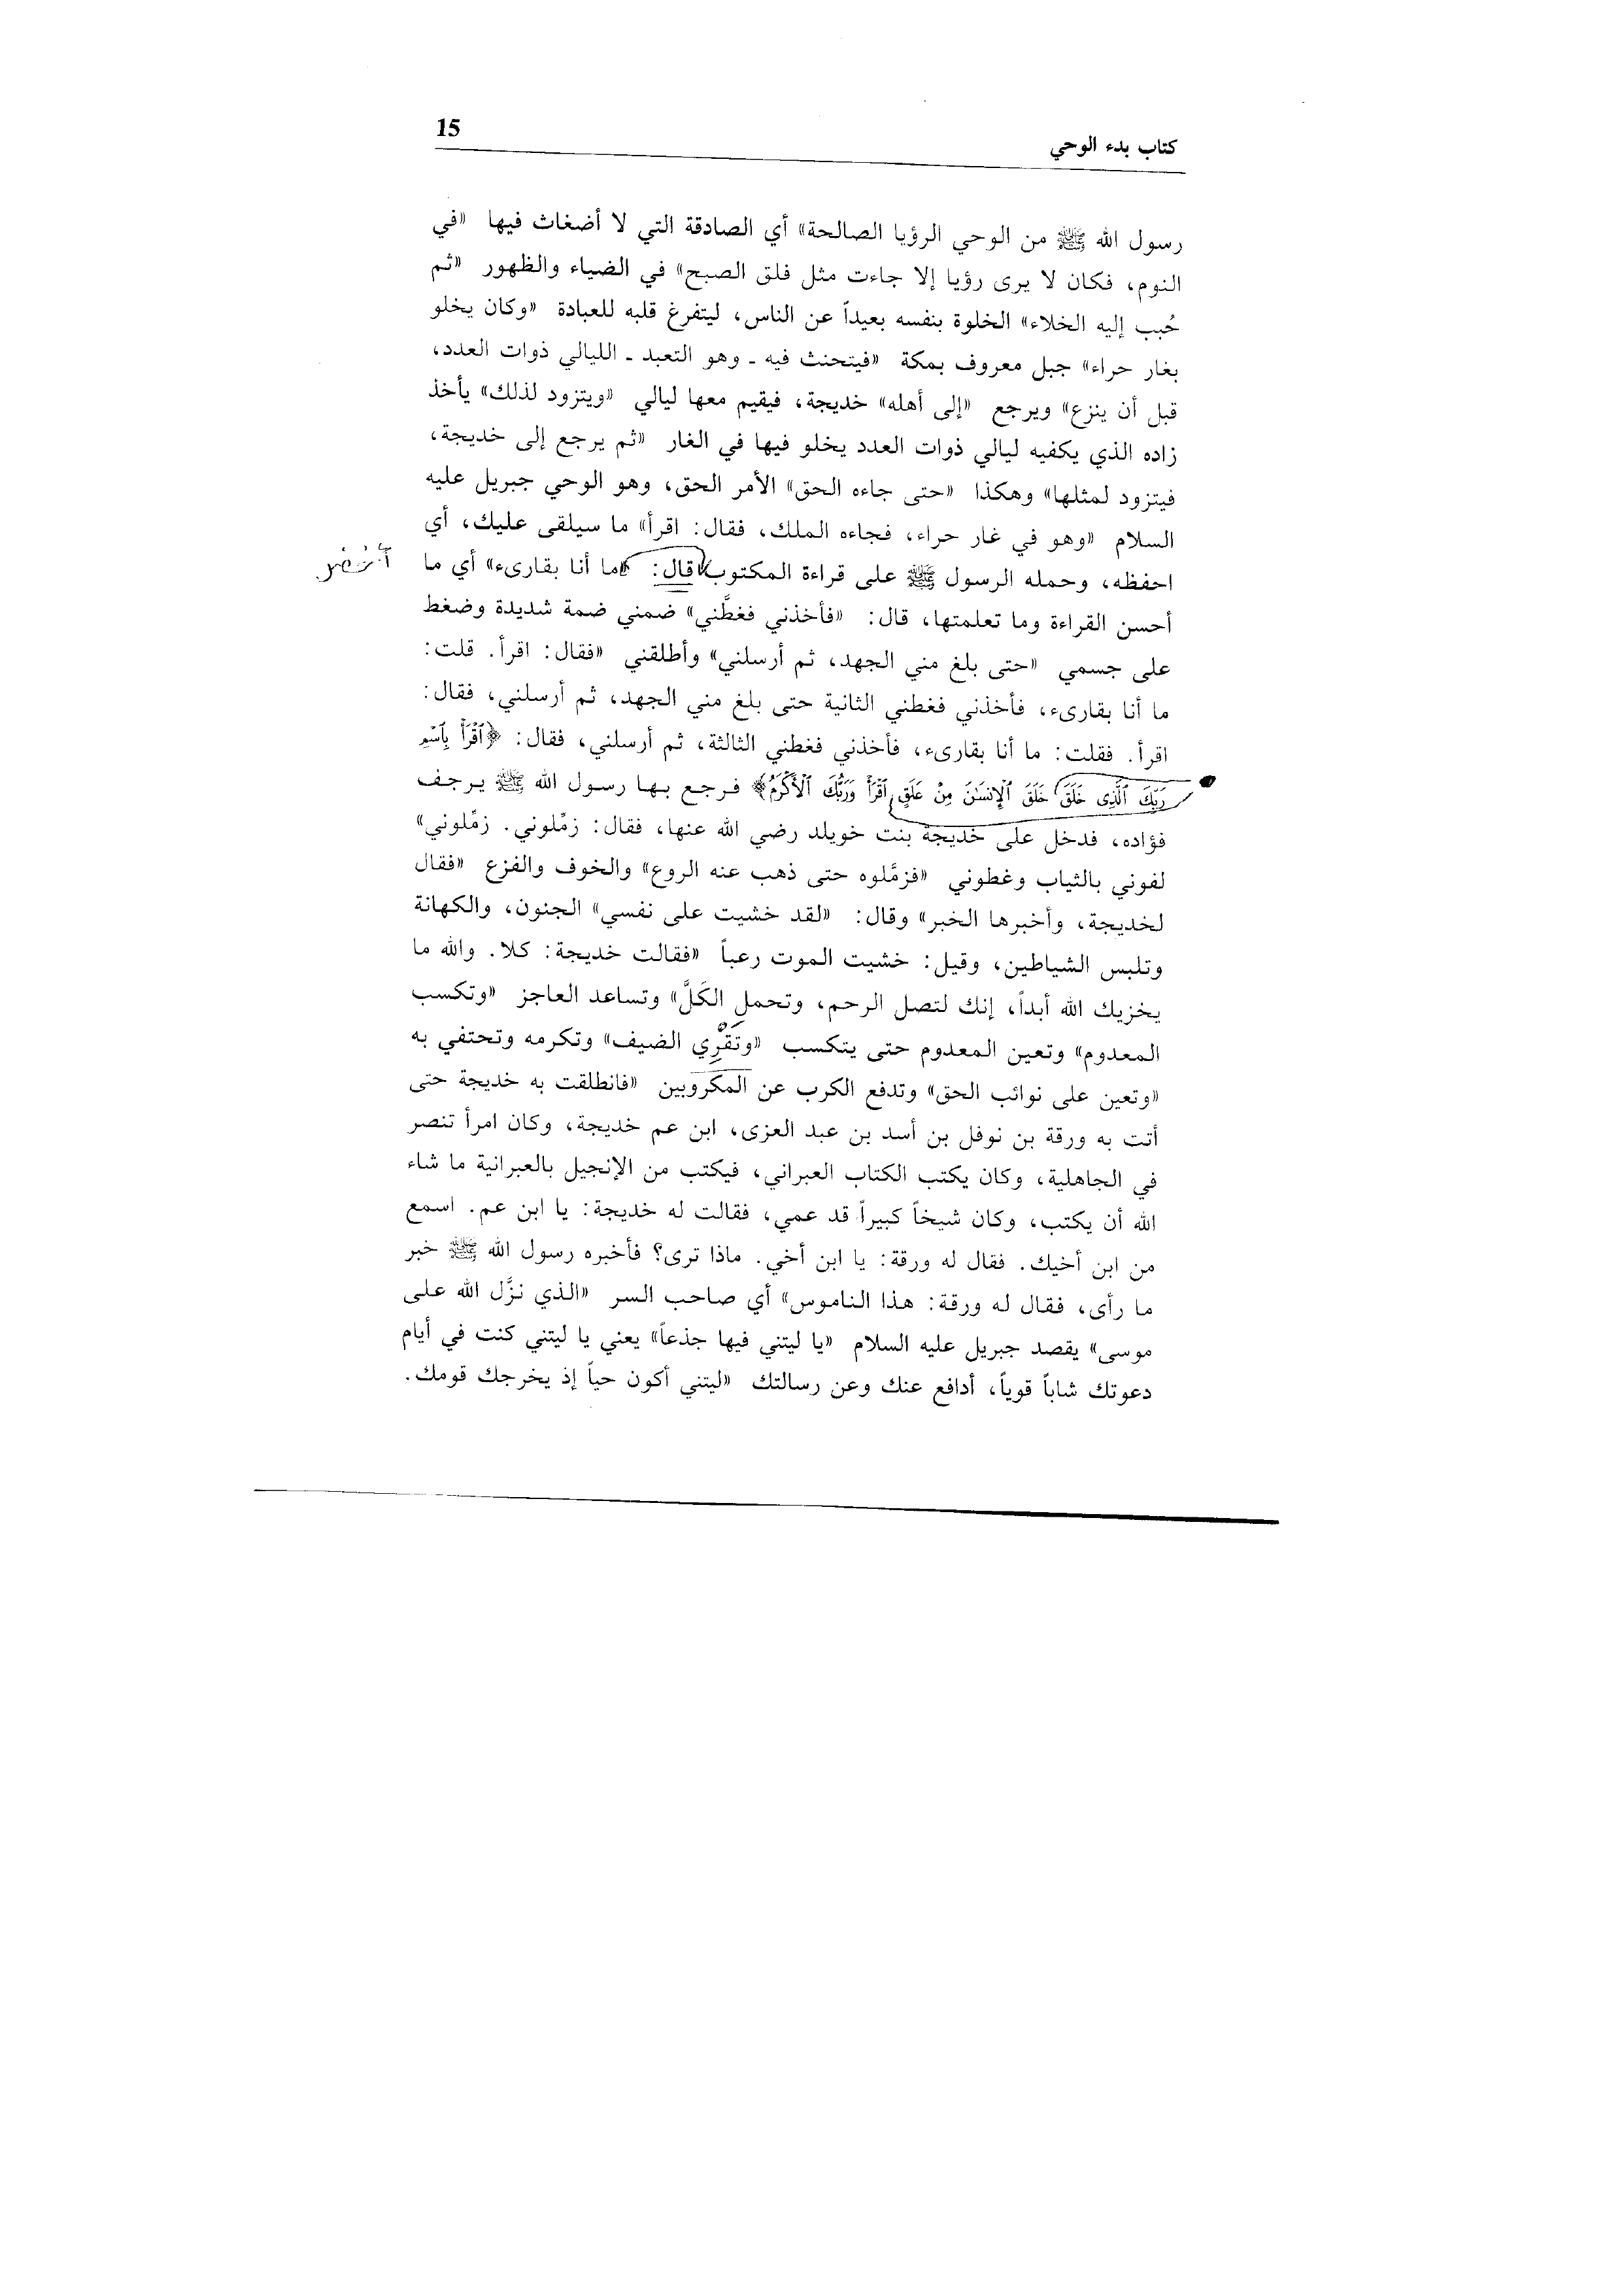 15
كتاب بدء الوحي
رسول الله ﷺ من الوحي الرؤيا الصالحة» أي الصادقة التي لا أضغاث فيها «في
النوم، فكان لا يرى رؤيا إلا جاءت مثل فلق الصبح» في الضياء والظهور «ثم
حُبب إليه الخلاء» الخلوة بنفسه بعيداً عن الناس، ليتفرغ قلبه للعبادة «وكان يخلو
بغار حراء» جبل معروف بمكة «فيتحنث فيه ـ وهو التعبد ـ الليالي ذوات العدد،
قبل أن ينزع» ويرجع «إلى أهله» خديجة، فيقيم معها ليالي «ويتزود لذلك» يأخذ
زاده الذي يكفيه ليالي ذوات العدد يخلو فيها في الغار «ثم يرجع إلى خديجة،
فيتزود لمثلها» وهكذا «حتى جاءه الحق» الأمر الحق، وهو الوحي جبريل عليه
السلام «وهو في غار حراء، فجاءه الملك، فقال: اقرأ» ما سيلقى عليك، أي
احفظه، وحمله الرسول ﷺ على قراءة المكتوب قال: «ما أنا بقارىء» أي ما
أحسن القراءة وما تعلمتها، قال: «فأخذني فغطَّني» ضمني ضمة شديدة وضغط
على جسمي «حتى بلغ مني الجهد، ثم أرسلني» وأطلقني «فقال: اقرأ. قلت:
ما أنا بقارىء، فأخذني فغطني الثانية حتى بلغ مني الجهد، ثم أرسلني، فقال:
اقرأ. فقلت: ما أنا بقارىء، فأخذني فغطني الثالثة، ثم أرسلني، فقال: ﴿ٱقْرَأْ بِٱسْمِ
رَبِّكَ ٱلَّذِى خَلَقَ خَلَقَ ٱلْإِنسَٰنَ مِنْ عَلَقٍ ٱقْرَأْ وَرَبُّكَ ٱلْأَكْرَمُ﴾ فرجع بها رسول الله ﷺ يرجف
فؤاده، فدخل على خديجة بنت خويلد رضي الله عنها، فقال: زمِّلوني. زمِّلوني»
لفوني بالثياب وغطوني «فزمَّلوه حتى ذهب عنه الروع» والخوف والفزع «فقال
لخديجة، وأخبرها الخبر» وقال: «لقد خشيت على نفسي» الجنون، والكهانة
وتلبس الشياطين، وقيل: خشيت الموت رعباً «فقالت خديجة: كلا. والله ما
يخزيك الله أبداً، إنك لتصل الرحم، وتحمل الكَلَّ» وتساعد العاجز «وتكسب
المعدوم» وتعين المعدوم حتى يتكسب «وتَقْرِي الضيف» وتكرمه وتحتفي به
«وتعين على نوائب الحق» وتدفع الكرب عن المكروبين «فانطلقت به خديجة حتى
أتت به ورقة بن نوفل بن أسد بن عبد العزى، ابن عم خديجة، وكان امرأ تنصر
في الجاهلية، وكان يكتب الكتاب العبراني، فيكتب من الإنجيل بالعبرانية ما شاء
الله أن يكتب، وكان شيخاً كبيراً قد عمي، فقالت له خديجة: يا ابن عم. اسمع
من ابن أخيك. فقال له ورقة: يا ابن أخي. ماذا ترى؟ فأخبره رسول الله ﷺ خبر
ما رأى، فقال له ورقة: هذا الناموس» أي صاحب السر «الذي نزَّل الله على
موسى» يقصد جبريل عليه السلام «يا ليتني فيها جذعاً» يعني يا ليتني كنت في أيام
دعوتك شاباً قوياً، أدافع عنك وعن رسالتك «ليتني أكون حياً إذ يخرجك قومك.